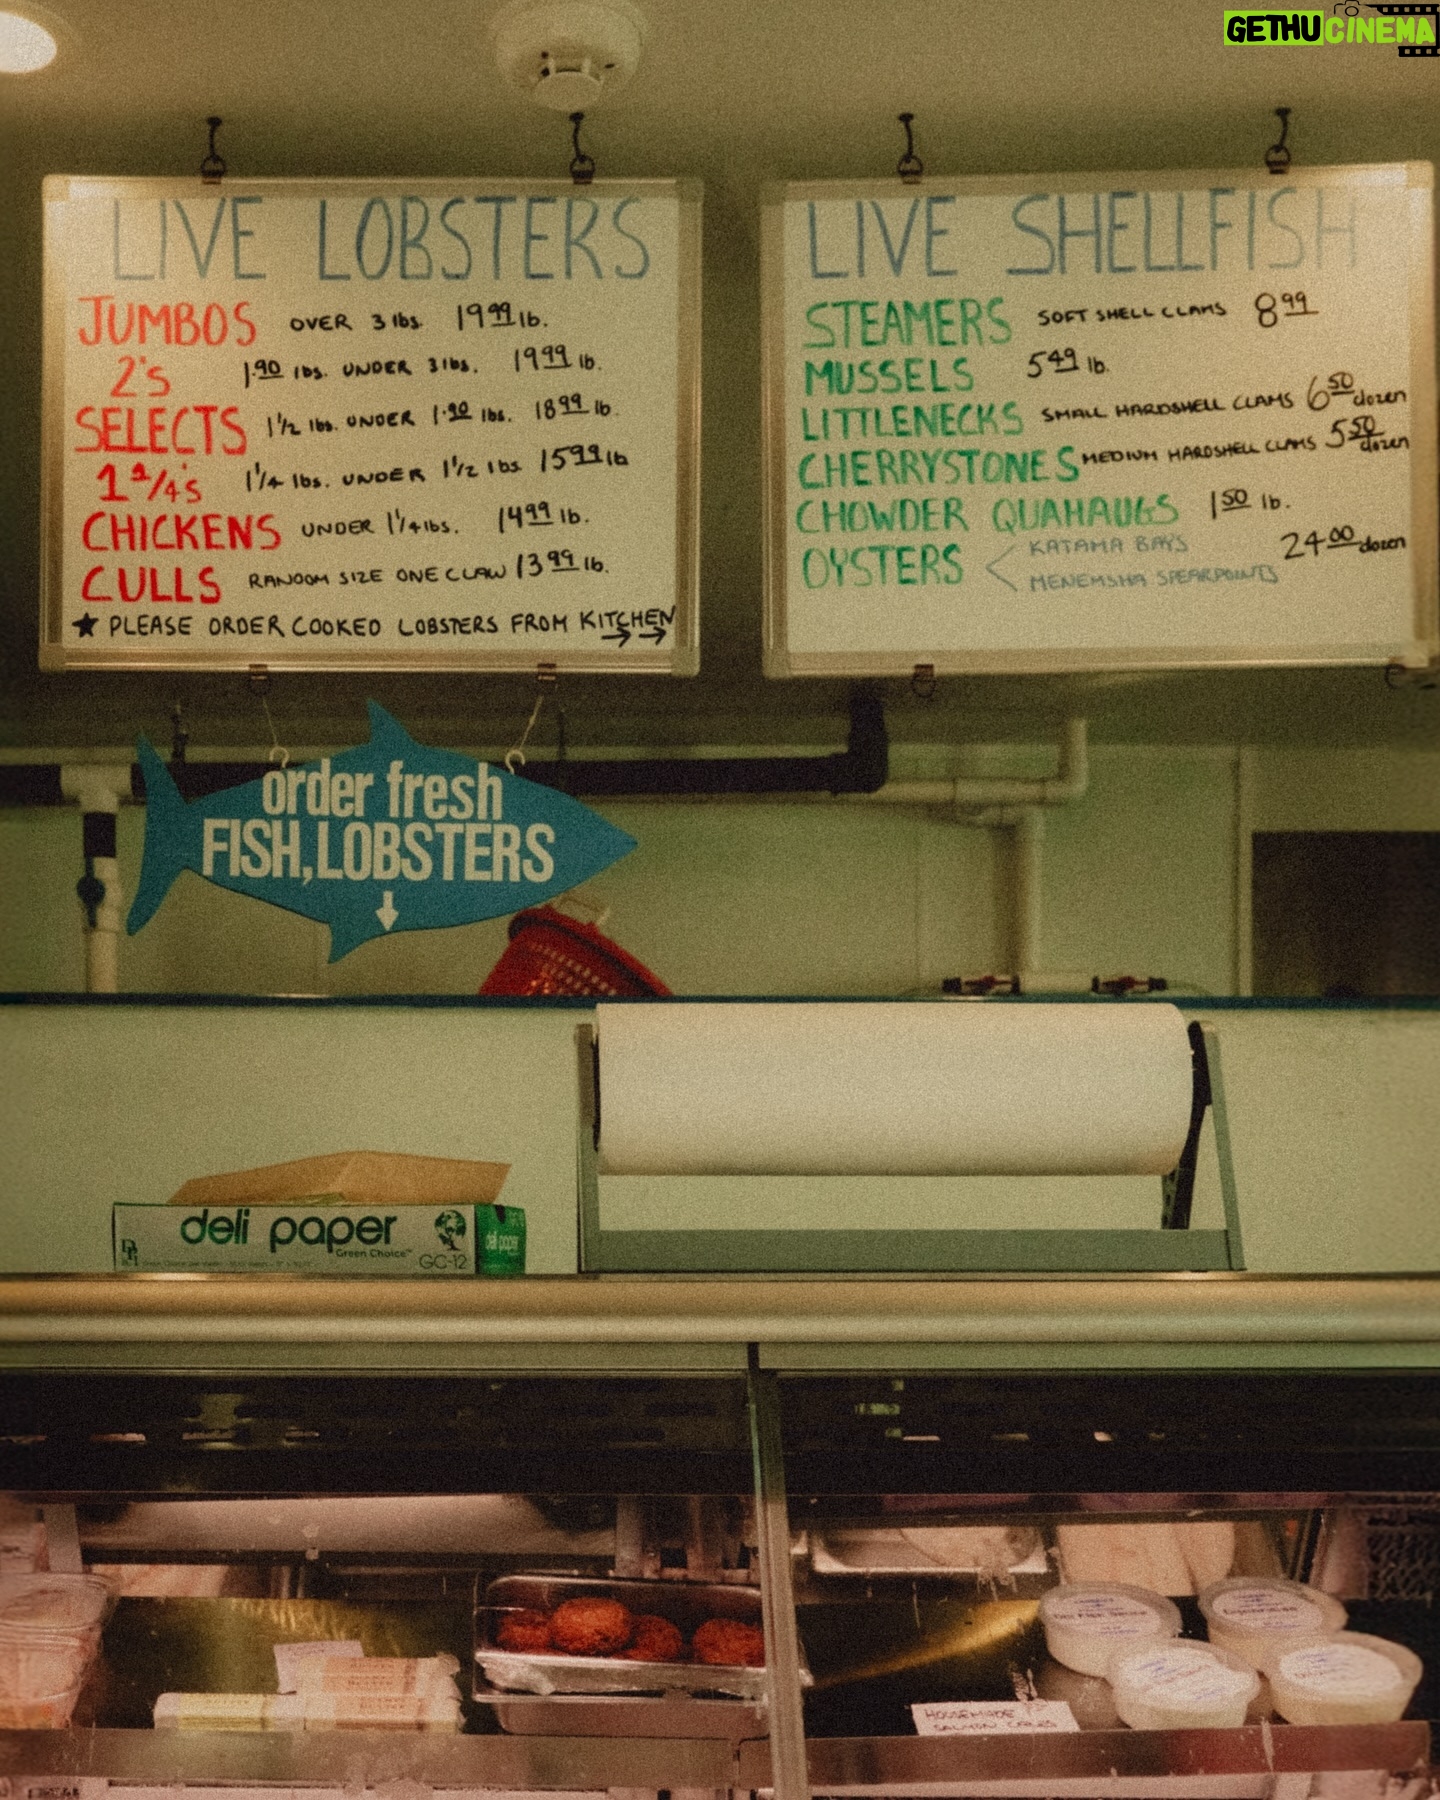 GETHUCINEMA
LIVE LOBSTERS
JUMBOS OVER 3 lbs. 19.99 lb.
2's 1.90 lbs. UNDER 3 lbs. 19.99 lb.
SELECTS 1 1/2 lbs. UNDER 1.90 lbs. 18.99 lb.
1 1/4's 1 1/4 lbs. UNDER 1 1/2 lbs 15.99 lb
CHICKENS UNDER 1 1/4 lbs. 14.99 lb.
CULLS RANDOM SIZE ONE CLAW 13.99 lb.
★ PLEASE ORDER COOKED LOBSTERS FROM KITCHEN →→
LIVE SHELLFISH
STEAMERS SOFT SHELL CLAMS 8.99
MUSSELS 5.49 lb.
LITTLENECKS SMALL HARDSHELL CLAMS 6.50 dozen
CHERRYSTONES MEDIUM HARDSHELL CLAMS 5.50 dozen
CHOWDER QUAHAUGS 1.50 lb.
OYSTERS < KATAMA BAYS 24.00 dozen
MENEMSHA SPEARPOINTS
order fresh
FISH, LOBSTERS
deli paper
Green Choice™
GC-12
deli paper
HOMEMADE
SALMON CAKES